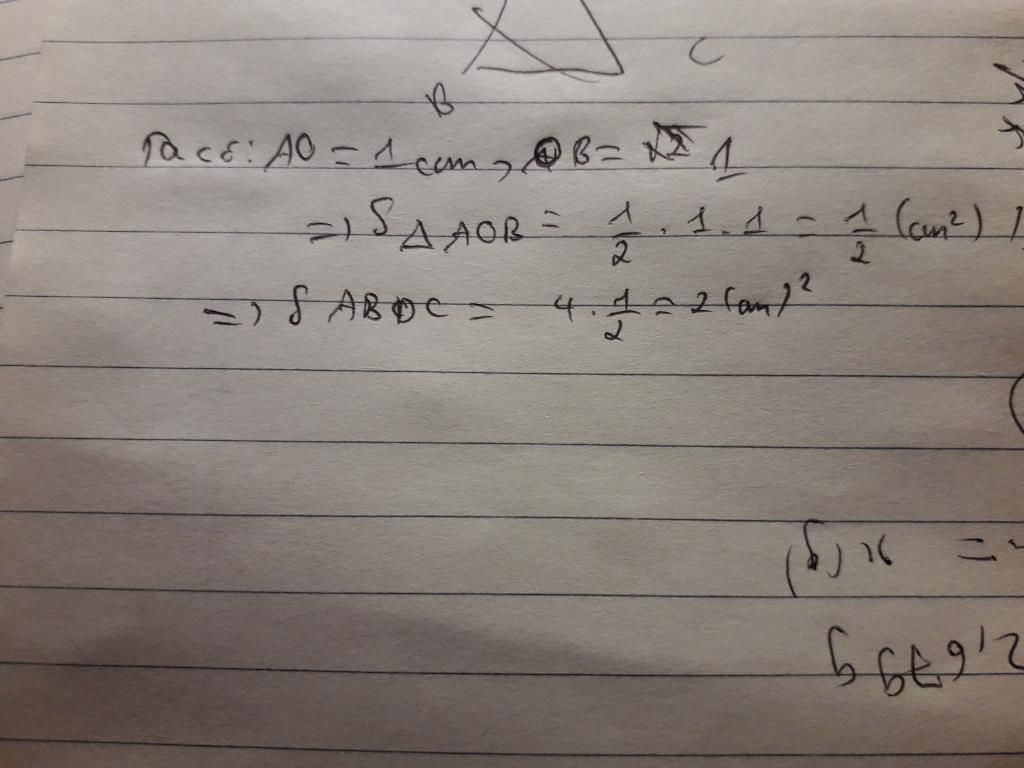 C
B
Ta có: AO = 1 cm, OB = 1
=> S △ AOB = 1/2 . 1 . 1 = 1/2 (cm²)
=> S ABDC = 4 . 1/2 = 2 (cm)²